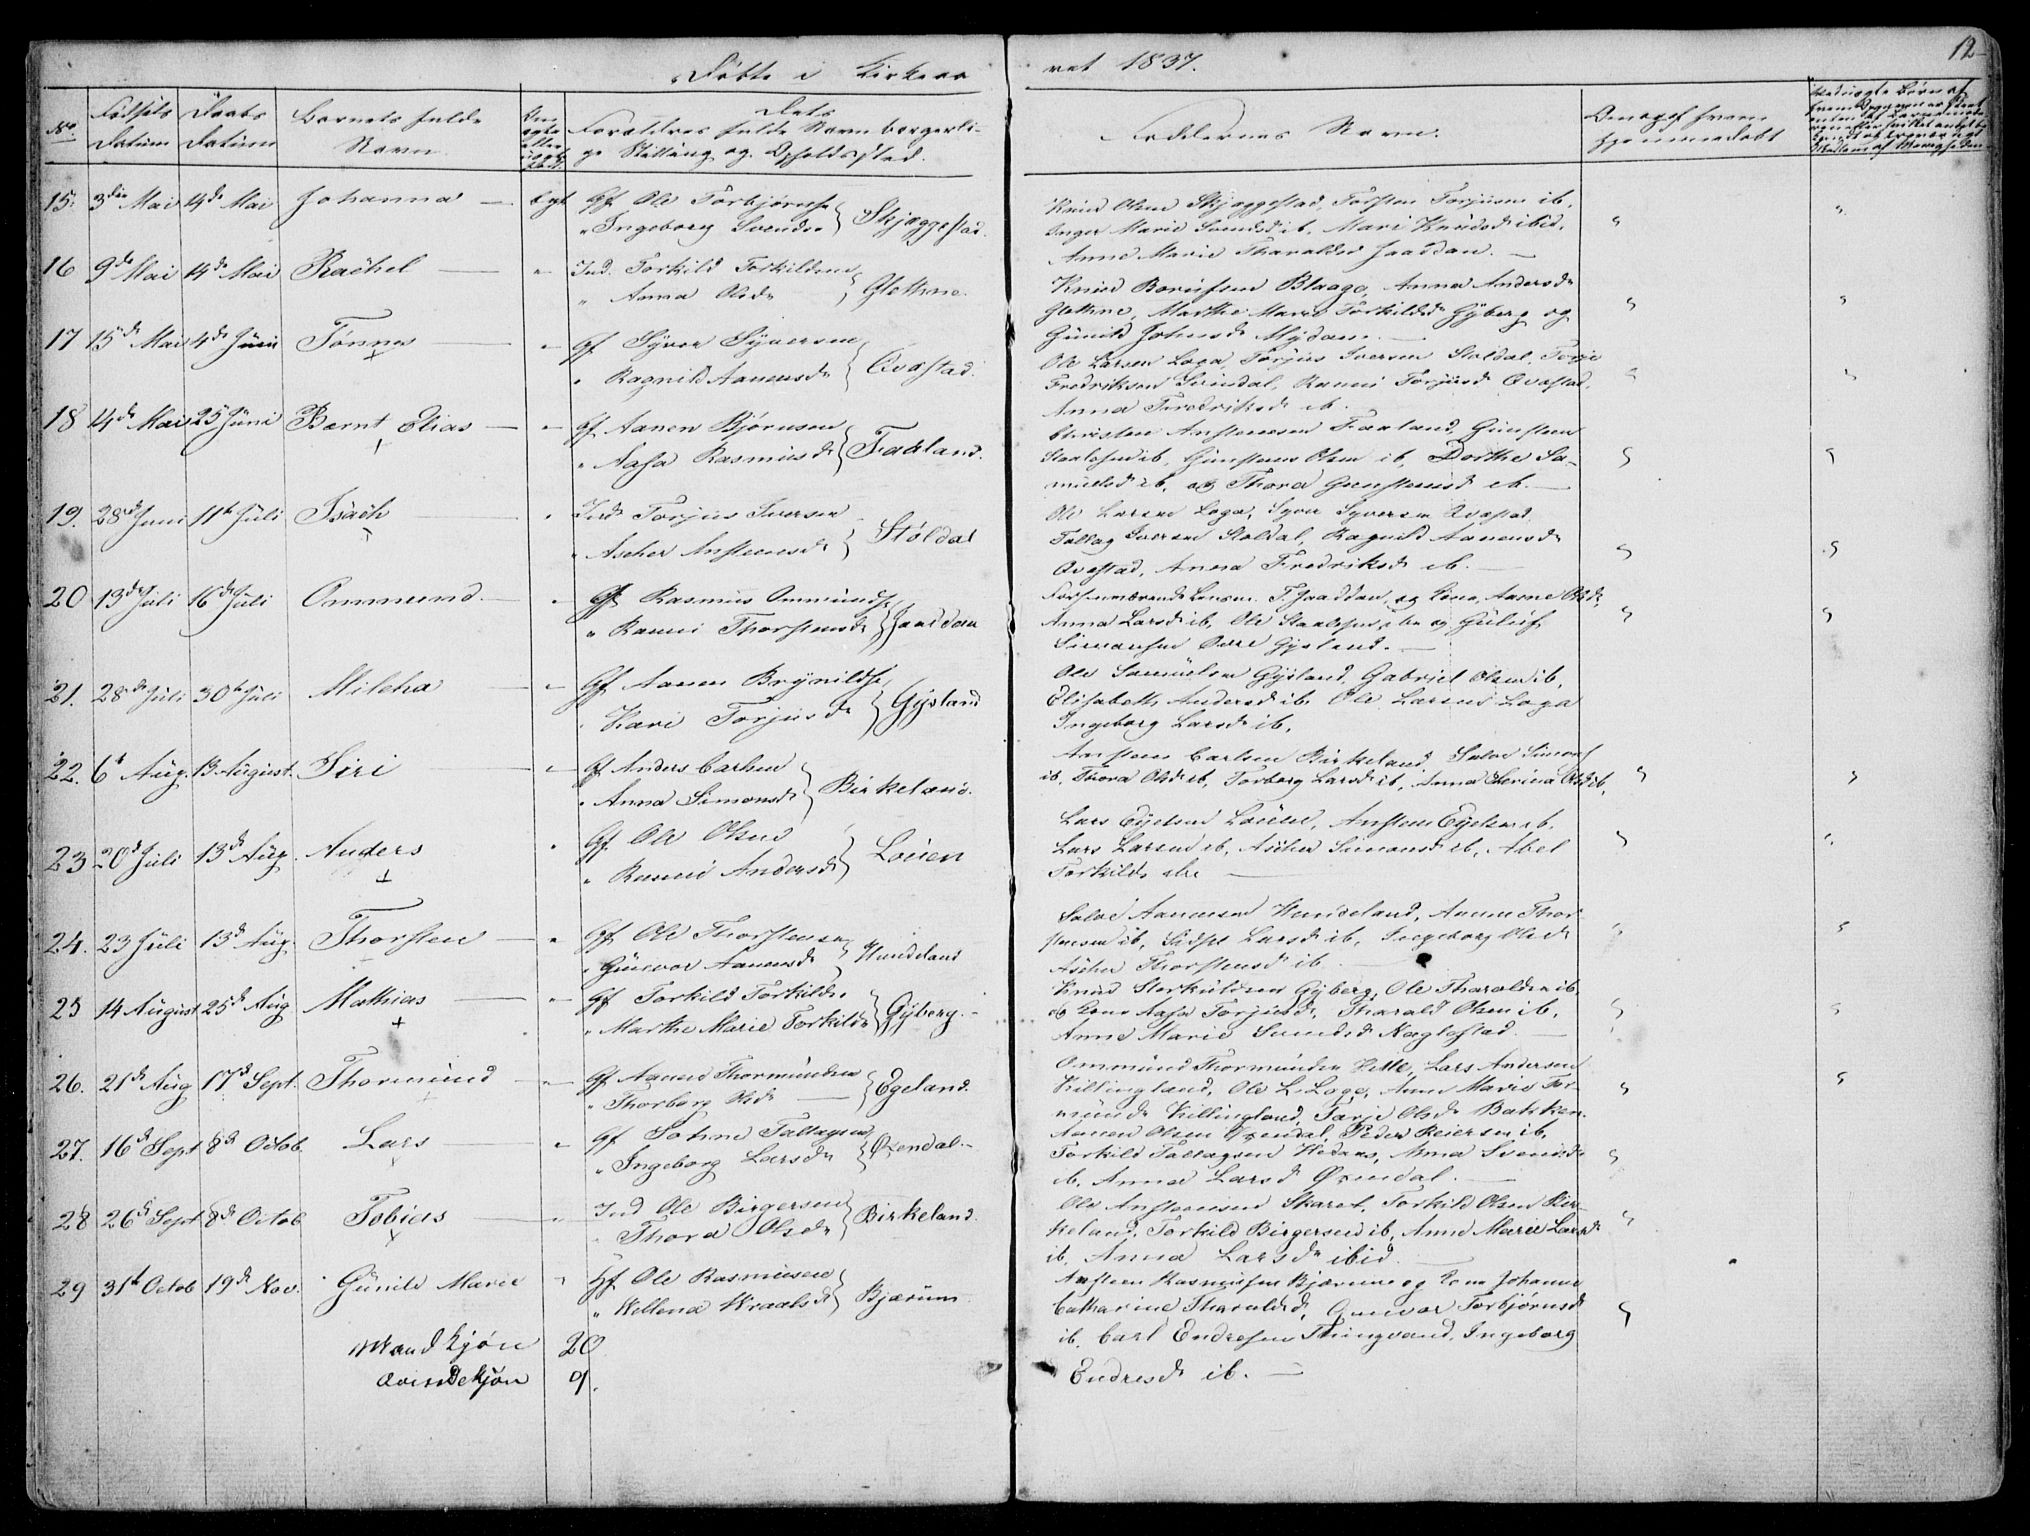 Døbte i Kirkeaa
ret 1837.
12
No
Fødsels
Datum
Daabs
Datum
Barnets fulde
Navn.
Dets
Forældres fulde Navn borgerli-
ge Stilling og Opholdssted.
Faddernes Navn.
Om og af hvem
hjemmedøbt
15. 3die Mai 14de Mai Johanna — Ægt Gf. Ole Torbjørns
" Ingeborg Svends Skjæggestad.
Knud Olsen Skjæggestad, Torsten Torjusen ib.
Inger Marie Svendsd ib, Mari Knudsd ibid,
Anne Marie Tharaldsd Jaaddan. —
16 9de Mai 14de Mai Rachel — " Ind. Torkild Torkildsen
" Anna Olsd Glothne.
Knud Baruhsen Blaage, Anna Andersd
Glothne, Marthe Marie Torkildsd Gyberg og
Gunild Johnsd Mydan. —
17 15de Mai 4de Juni Tønnes — " Gf. Syver Syversen
" Ragnild Aanensd Qvastad.
Ole Larsen Loga, Torjus Iversen Stoldal, Torje
Fredriksen Svindal, Ranni Torjusd Qvastad,
Anna Fredriksd ib.
18 14de Mai 25 Juni Bernt Elias — " Gf. Aanen Bjørnsen
" Aasa Rasmusd Faaland.
Christen Anstensen Faaland, Gunsten
Staalesen ib, Gunsten Olsen ib, Dorthe Sa-
muelsd ib, og Thora Gunstensd ib. —
19. 28de Juni 11te Juli Isach — " Ind. Torjus Iversen
" Ascher Anstensd Støldal
Ole Larsen Loga, Syver Syversen Qvastad,
Tallag Iversen Stoldal, Ragnild Aanensd
Qvastad, Anna Fredriksd ib. —
20 13de Juli 16de Juli Ommund. — " Gf. Rasmus Ommunds
" Ranni Thorstensd Jaaddan
Forhenværende Lensm. T. Jaaddan, og Kone, Aanne Olsd,
Anna Larsd ib, Ole Staalesen ibm og Guluf
Simonsen Øvre Gysland. —
21. 28de Juli 30te Juli Milcha — " Gf. Aanen Brynilds
" Kari Torjusd Gysland
Ole Samuelsen Gysland, Gabriel Olsen ib,
Elisabeth Andersd ib, Ole Larsen Loga
Ingeborg Larsd ib,
22. 6te Aug. 13 August. Siri — " Gf. Anders Carlsen
" Anna Simonsd Birkeland.
Ansten Carlsen Birkeland, Salve Simons
ib, Thora Olsd ib, Torborg Larsd ib, Anna Serina Olsd ib,
23 20de Juli 13de Aug. Anders " Gf. Ole Olsen
" Ranni Andersd Løuen
Lars Eyelsen Løuen, Ansten Eyelsen ib,
Lars Larsen ib, Ascher Simonsd ib, Abel
Torkilds ibm —
24. 23 Juli 13de Aug. Thorsten — " Gf. Ole Thorstensen
" Gunvor Aanensd Hundeland
Salve Aanensen Hundeland, Aanen Thor-
stensen ib, Sidsel Larsd ib, Ingeborg Olsd
Ascher Thorstensd ib —
25 14 August 25de Aug. Mathias — " Gf. Torkild Torkilds.
" Marthe Marie Torkildsd Gyberg. —
Knud Storkuldsen Gyberg, Ole Tharaldsen ib,
og Kone Aasa Torjusd, Tharald Olsen ib,
Anne Marie Svendsd Næglestad. —
26. 21de Aug 17de Sept. Thormund — " Gf. Aanen Thormundsen
" Thorborg Olsd — Egeland.
Ommund Thormundsen Hette, Lars Andersen
Killingland, Ole L. Loga, Anne Marie Tor-
munds Killingland, Tarje Olsd Bakken.
27. 16de Sept 8de Octob. Lars — " Gf. Johne Tallagsen
" Ingeborg Larsd Øxendal. —
Aanen Olsen Øxendal, Peder Reiersen ib,
Torkild Tallagsen Hedans, Anna Svendsd
ib, Anna Larsd Øxendal. —
28 26de Sept 8de Octob Tobias — " Ind Ole Birgersen
" Thora Olsd Birkeland.
Ole Anstensen Skaret, Torkild Olsen Bir-
keland, Torkild Birgersen ib, Anne Marie Larsd
ib, Anna Larsd ibid —
29 31te Octob 19de Nov. Gunild Marie " Gf. Ole Rasmusen
" Willena Vraalsd Bjærum.
Ansteen Rasmusen Bjærum og Kone Johanne
Catharine Tharaldsd, Gunvor Torbjørnsd
ib, Carl Endresen Thingvand, Ingeborg
Endresd ib. —
Mandkjøn 20.
Qvindekjøn 9.